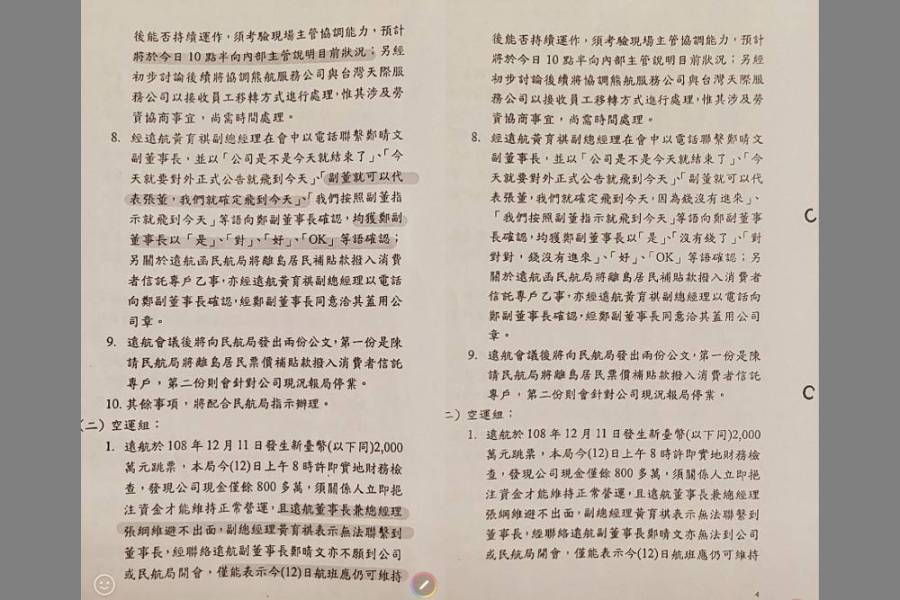 後能否持續運作，須考驗現場主管協調能力，預計
將於今日 10 點半向內部主管說明目前狀況；另經
初步討論後續將協調熊航服務公司與台灣天際服
務公司以接收員工移轉方式進行處理，惟其涉及勞
資協商事宜，尚需時間處理。
8. 經遠航黃育祺副總經理在會中以電話聯繫鄭晴文
副董事長，並以「公司是不是今天就結束了」、「今
天就要對外正式公告就飛到今天」、「副董就可以代
表張董，我們就確定飛到今天」、「我們按照副董指
示就飛到今天」等語向鄭副董事長確認，均獲鄭副
董事長以「是」、「對」、「好」、「OK」等語確認；
另關於遠航函民航局將離島居民補貼款撥入消費
者信託專戶乙事，亦經遠航黃育祺副總經理以電話
向鄭副董事長確認，經鄭副董事長同意洽其蓋用公
司章。
9. 遠航會議後將向民航局發出兩份公文，第一份是陳
請民航局將離島居民票價補貼款撥入消費者信託
專戶，第二份則會針對公司現況報局停業。
10. 其餘事項，將配合民航局指示辦理。
(二) 空運組：
1. 遠航於 108 年 12 月 11 日發生新臺幣(以下同)2,000
萬元跳票，本局今(12)日上午 8 時許即實地財務檢
查，發現公司現金僅餘 800 多萬，須關係人立即挹
注資金才能維持正常營運，且遠航董事長兼總經理
張綱維避不出面，副總經理黃育祺表示無法聯繫到
董事長，經聯絡遠航副董事長鄭晴文亦不願到公司
或民航局開會，僅能表示今(12)日航班應仍可維持
後能否持續運作，須考驗現場主管協調能力，預計
將於今日 10 點半向內部主管說明目前狀況；另經
初步討論後續將協調熊航服務公司與台灣天際服
務公司以接收員工移轉方式進行處理，惟其涉及勞
資協商事宜，尚需時間處理。
8. 經遠航黃育祺副總經理在會中以電話聯繫鄭晴文
副董事長，並以「公司是不是今天就結束了」、「今
天就要對外正式公告就飛到今天」、「副董就可以代
表張董，我們就確定飛到今天，因為錢沒有進來」、
「我們按照副董指示就飛到今天」等語向鄭副董事
長確認，均獲鄭副董事長以「是」、「沒有錢了」、「對
對對，錢沒有進來」、「好」、「OK」等語確認；另
關於遠航函民航局將離島居民補貼款撥入消費者
信託專戶乙事，亦經遠航黃育祺副總經理以電話向
鄭副董事長確認，經鄭副董事長同意洽其蓋用公司
章。
9. 遠航會議後將向民航局發出兩份公文，第一份是陳
請民航局將離島居民票價補貼款撥入消費者信託
專戶，第二份則會針對公司現況報局停業。
二) 空運組：
1. 遠航於 108 年 12 月 11 日發生新臺幣(以下同)2,000
萬元跳票，本局今(12)日上午 8 時許即實地財務檢
查，發現公司現金僅餘 800 多萬，須關係人立即挹
注資金才能維持正常營運，且遠航董事長兼總經理
張綱維避不出面，副總經理黃育祺表示無法聯繫到
董事長，經聯絡遠航副董事長鄭晴文亦無法到公司
或民航局開會，僅能表示今(12)日航班應仍可維持
4